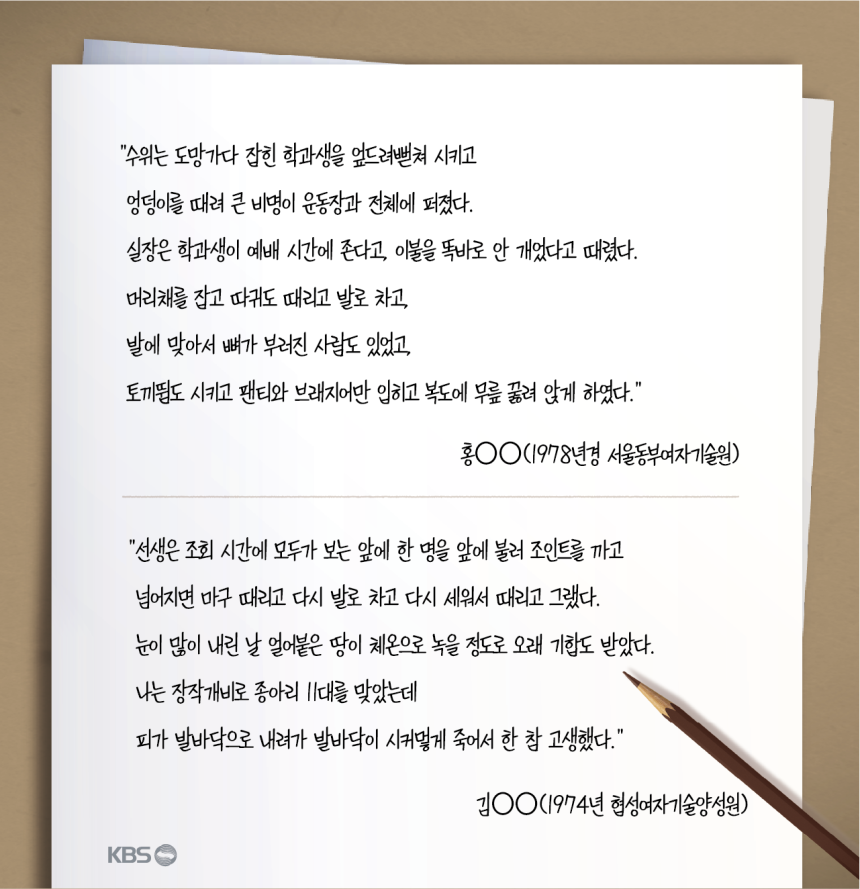 "수위는 도망가다 잡힌 학과생을 엎드려뻗쳐 시키고
엉덩이를 때려 큰 비명이 운동장과 전체에 퍼졌다.
실장은 학과생이 예배 시간에 존다고, 이불을 똑바로 안 개었다고 때렸다.
머리채를 잡고 따귀도 때리고 발로 차고,
발에 맞아서 뼈가 부러진 사람도 있었고,
토끼뜀도 시키고 팬티와 브래지어만 입히고 복도에 무릎 꿇려 앉게 하였다."
홍○○(1978년경 서울동부여자기술원)
"선생은 조회 시간에 모두가 보는 앞에 한 명을 앞에 불러 조인트를 까고
넘어지면 마구 때리고 다시 발로 차고 다시 세워서 때리고 그랬다.
눈이 많이 내린 날 얼어붙은 땅이 체온으로 녹을 정도로 오래 기합도 받았다.
나는 장작개비로 종아리 11대를 맞았는데
피가 발바닥으로 내려가 발바닥이 시커멓게 죽어서 한 참 고생했다."
김○○(1974년 협성여자기술양성원)
KBS